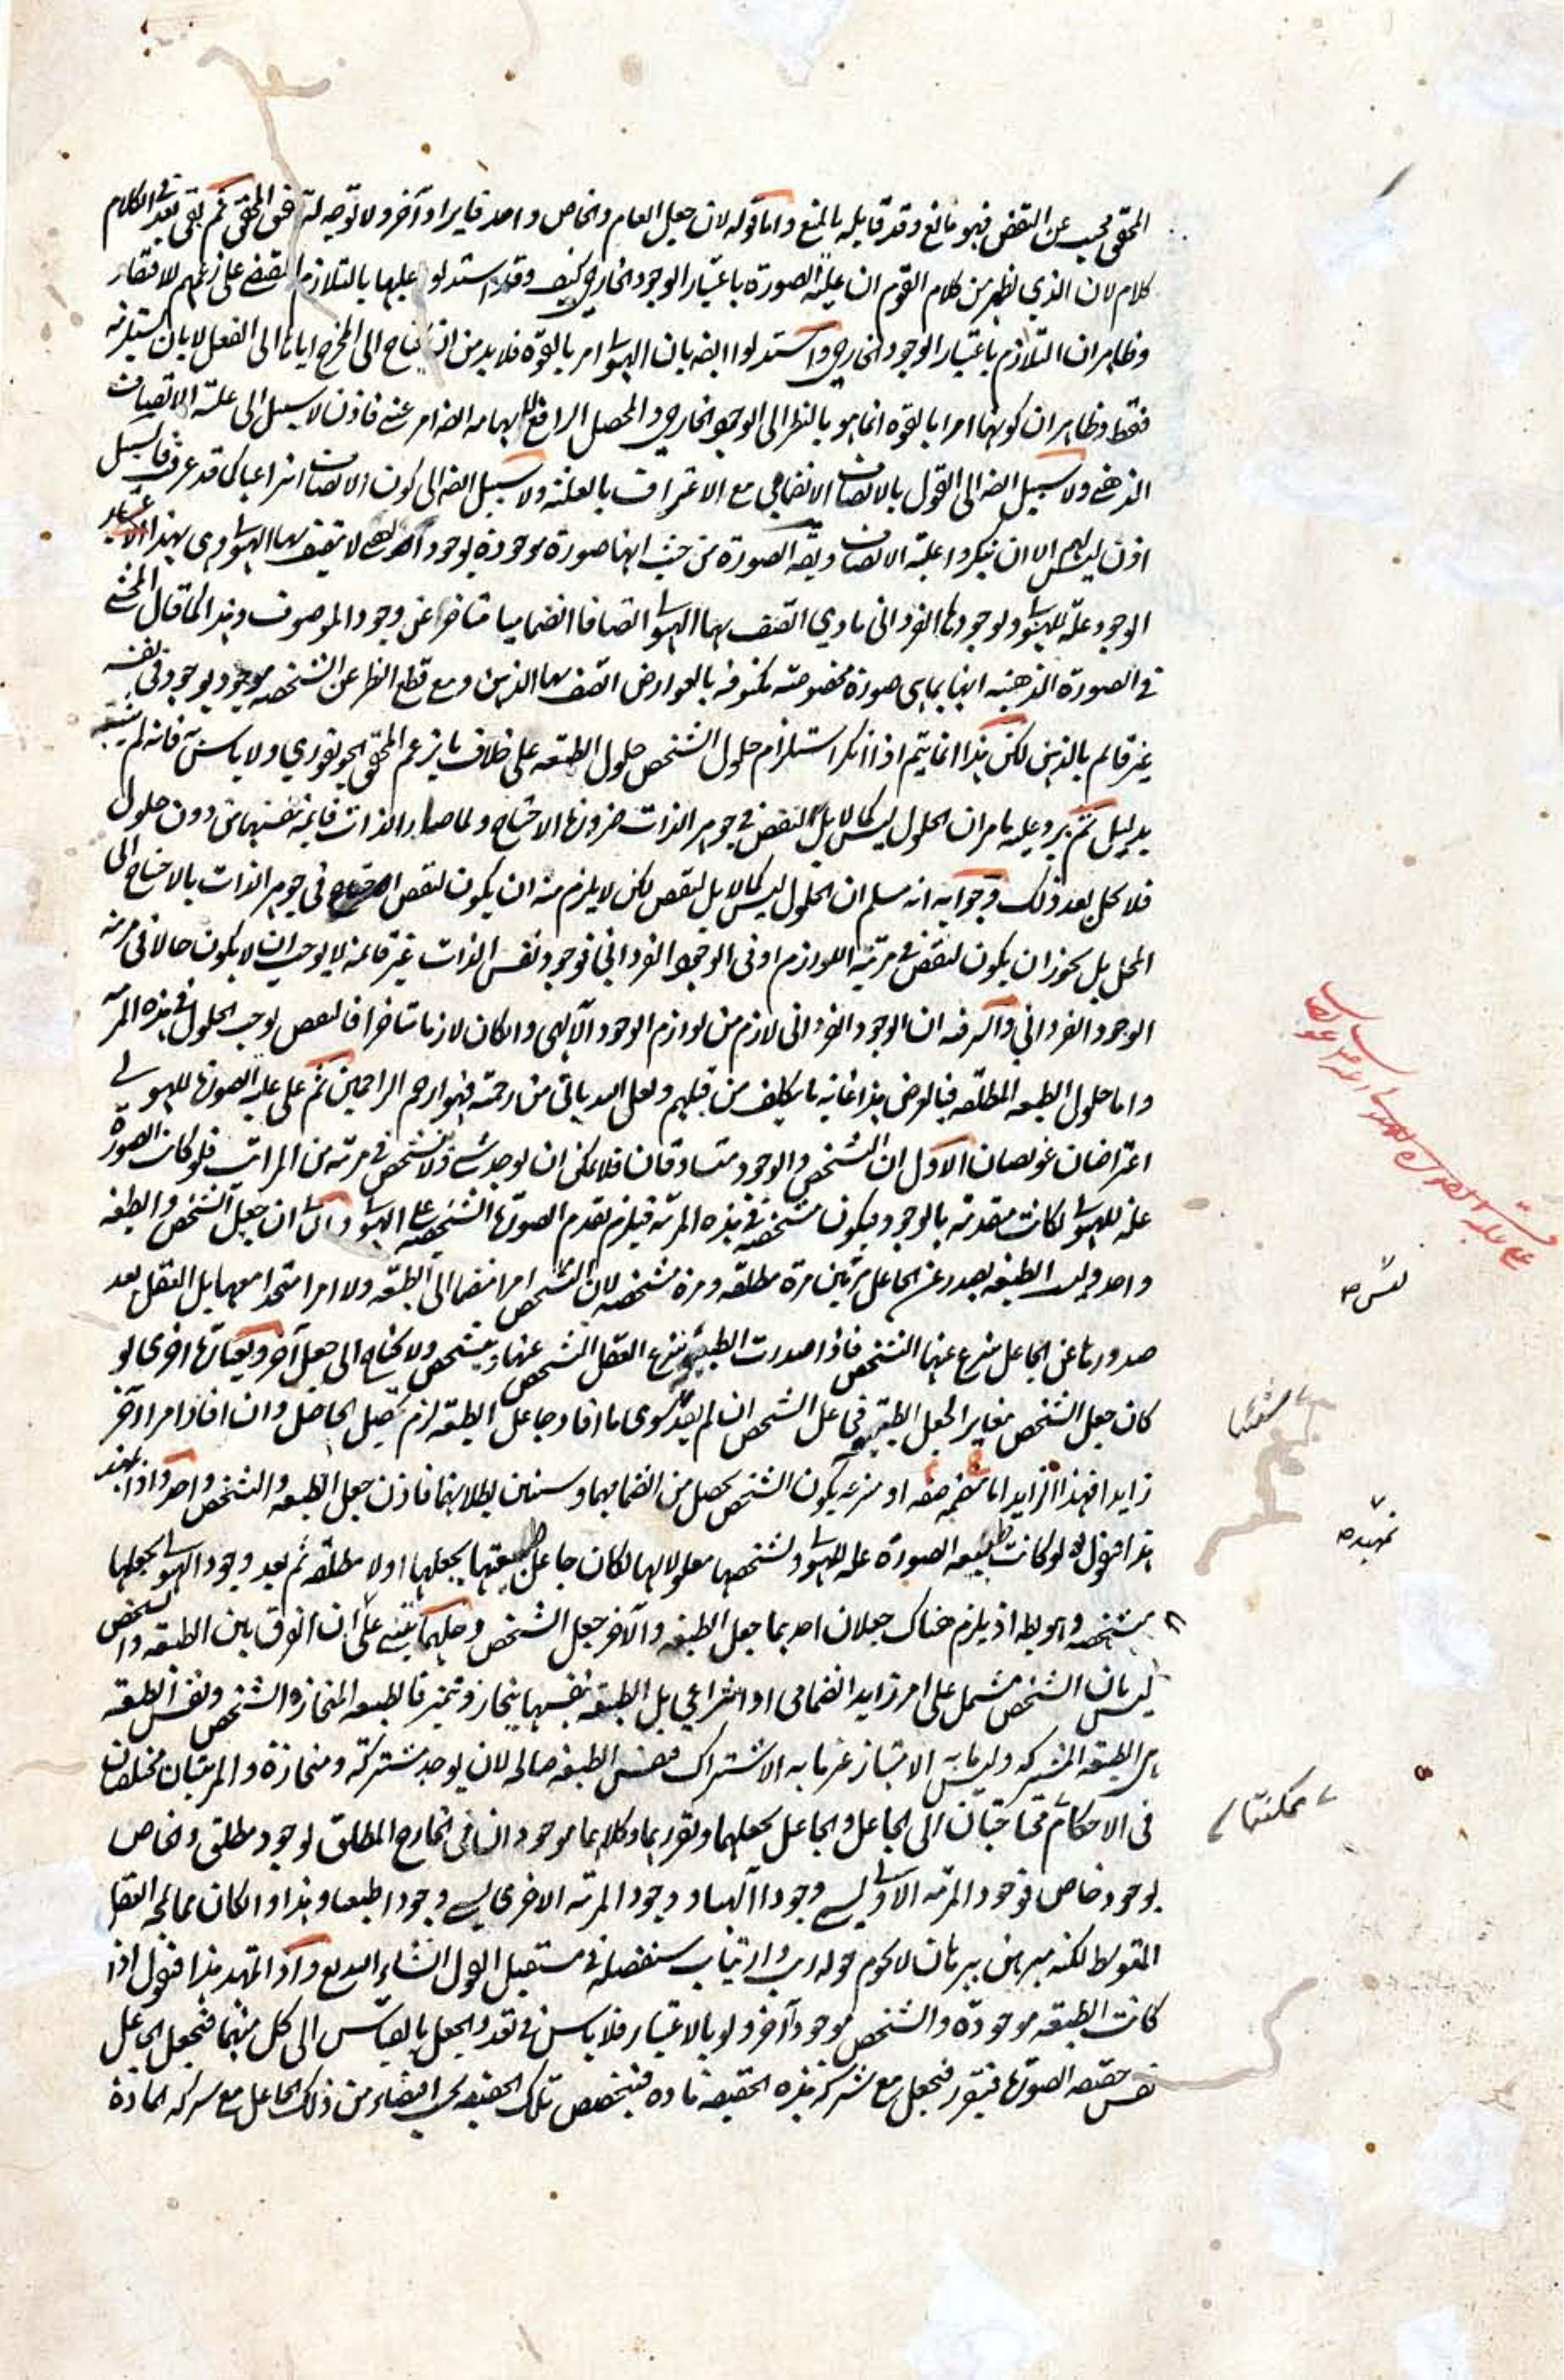 المحقق مجيب عن النقض فهو مانع وقد قابله بالمنع واما قوله لان جعل العام والخاص واحد فايراد آخر ولا توجه له فى حق المحقق ثم بقى بعد فى الكلام
كلام لان الذي يظهر من كلام القوم ان علية الصورة باعتبار الوجود الخارجي كيف وقد استدلوا عليها بالتلازم المقتضى على زعمهم للافتقار
وظاهر ان التلازم باعتبار الوجود الخارجي واستدلوا ايضه بان الهيولى امر بالقوة فلا بد من ان يحتاج الى المخرج اياها الى الفعل لا بان يستلزمه
فقط وظاهر ان كونها امرا بالقوه انما هو بالنظر الى الوجود الخارجي والمحصل الرافع للابهام ايضه امر عينى فاذن لا سبيل الى علية الاتصاف
الذهنى ولا سبيل ايضه الى القول بالاتصاف الانضمامي مع الاعتراف بالعلية ولا سبيل ايضه الى كون الاتصاف انتزاعيا كما قد عرفت فالسبيل
اذن ليس لهم الا ان ينكروا علية الاتصاف ويقه الصورة من حيث انها صورة موجودة بوجود لا يتصف بها الهيولى وهى بهذا الاعتبار
الوجود علة للهيولى ولوجودها الفردانى مادي اتصف بها الهيولى اتصافا انضماميا متاخرا عن وجود الموصوف وهذا كما قال المحشى
في الصورة الذهنيه انها بما هى صورة مخصوصة مكنوفه بالعوارض اتصف بها الذهن ومع قطع النظر عن التشخص موجود بوجود فى نفسه
غير قائم بالذهن لكن هذا انما يتم اذا انكر استلزام حلول الشخص حلول الطبيعه على خلاف ما يزعم المحقق الجونفوري ولا باس به فانه لم يثبت
بدليل ثم يرد عليه ما مر ان الحلول ليس كمالا بل النقص في جوهر الذات ضرورة الاحتياج ولما صار الذات قايمه بنفسها من دون حلول
فلا يحل بعد ذلك وجوابه انه مسلم ان الحلول ليس كمالا بل لنقص لكن لا يلزم منه ان يكون لنقص فى جوهر الذات بالاحتياج الى
المحل بل يجوز ان يكون لنقص في مرتبه اللوازم او فى الوجود الفرداني فوجود نفس الذات غير قائمه لا يوجب ان لا يكون حالا فى مرتبه
الوجود الفرداني والسر فيه ان الوجود الفردانى لازم من لوازم الوجود الآلهى وان كان لازما متاخرا فالنقص يوجب الحلول فى هذه المرتبه
واما حلول الطبيعه المطلقه فبالعرض هذا غايه ما يتكلف من قبلهم ولعل الله ياتى من رحمته فهو ارحم الراحمين ثم على علية الصورة للهيولى
اعتراضان عويصان الاول ان التشخص والوجود متساوقان فلا يمكن ان يوجد شئ ولا تشخص في مرتبه من المراتب فلو كانت الصورة
علة للهيولى لكانت متقدمة بالوجود فيكون متشخصه في هذه المرتبه فيلزم تقدم الصورة الشخصيه على الهيولى والثانى ان جعل الشخص والطبيعه
واحد وليست الطبيعه يصدر عن الجاعل مرتين مرة مطلقه ومرة متشخصه لان التشخص امرا منضما الى الطبيعه ولا امرا متحدا معها بل العقل بعد
صدورها عن الجاعل ينتزع عنها التشخص فاذا صدرت الطبيعة ينتزع العقل التشخص عنها ويتشخص ولا يحتاج الى جعل آخر وبعبارة اخرى لو
كان جعل التشخص مغايرا لجعل الطبيعه فجاعل التشخص ان لم يفد سوى ما افاد جاعل الطبيعه لزم تحصيل الحاصل وان افاد امرا آخر
زايدا فهذا الزايد اما منضمه صفه او منزعه يكون الشخص يحصل من انضمامهما وسنبين بطلانهما فاذن جعل الطبيعه والشخص واحد واذا تمهد
هذا فنقول لو كانت طبيعه الصورة علة للهيولى وتشخصها معلولا لها لكان جاعل طبيعتها يجعلها اولا مطلقه ثم بعد وجود الهيولى يجعلها
متشخصه وهو بط اذ يلزم هناك جعلان احدهما جعل الطبيعه والآخر جعل الشخص وحلهما يبتنى على ان الفرق بين الطبيعه والشخص
ليس بان الشخص مشتمل على امر زايد انضمامى او انتزاعي بل الطبيعه بنفسها ينحاز ويتميز فالطبيعه المنحازة الشخص ونفس الطبيعه
هى الطبيعه المشتركه وليس ما به الامتياز غير ما به الاشتراك فنفس الطبيعه صالحه لان يوجد مشتركة ومنحازة والمرتبتان مختلفتان
فى الاحكام محتاجتان الى الجاعل والجاعل يجعلهما ويقررهما وكلاهما موجودان فى الخارج المطلق بوجود مطلق والخاص
بوجود خاص فوجود المرتبه الاولى يسمى وجودا آلهيا ووجود المرتبه الاخرى يسمى وجودا طبيعيا وهذا وان كان مما لم يحله العقل
المتوسط لكنه مبرهن ببرهان لا يحوم حوله ريب وارتياب سنفصله في مستقبل القول انشاء الله البديع واذا تمهد هذا فنقول اذا
كانت الطبيعه موجودة والشخص موجود آخر ولو بالاعتبار فلا باس في تعدد الجعل بالقياس الى كل منهما فيجعل الجاعل
نفس حقيقه الصورة فيتقرر فيجعل مع شركة هذه الحقيقه مادة فيتخصص تلك الحقيقه بحسب اقتضاء من ذلك الجاعل مع شركة المادة